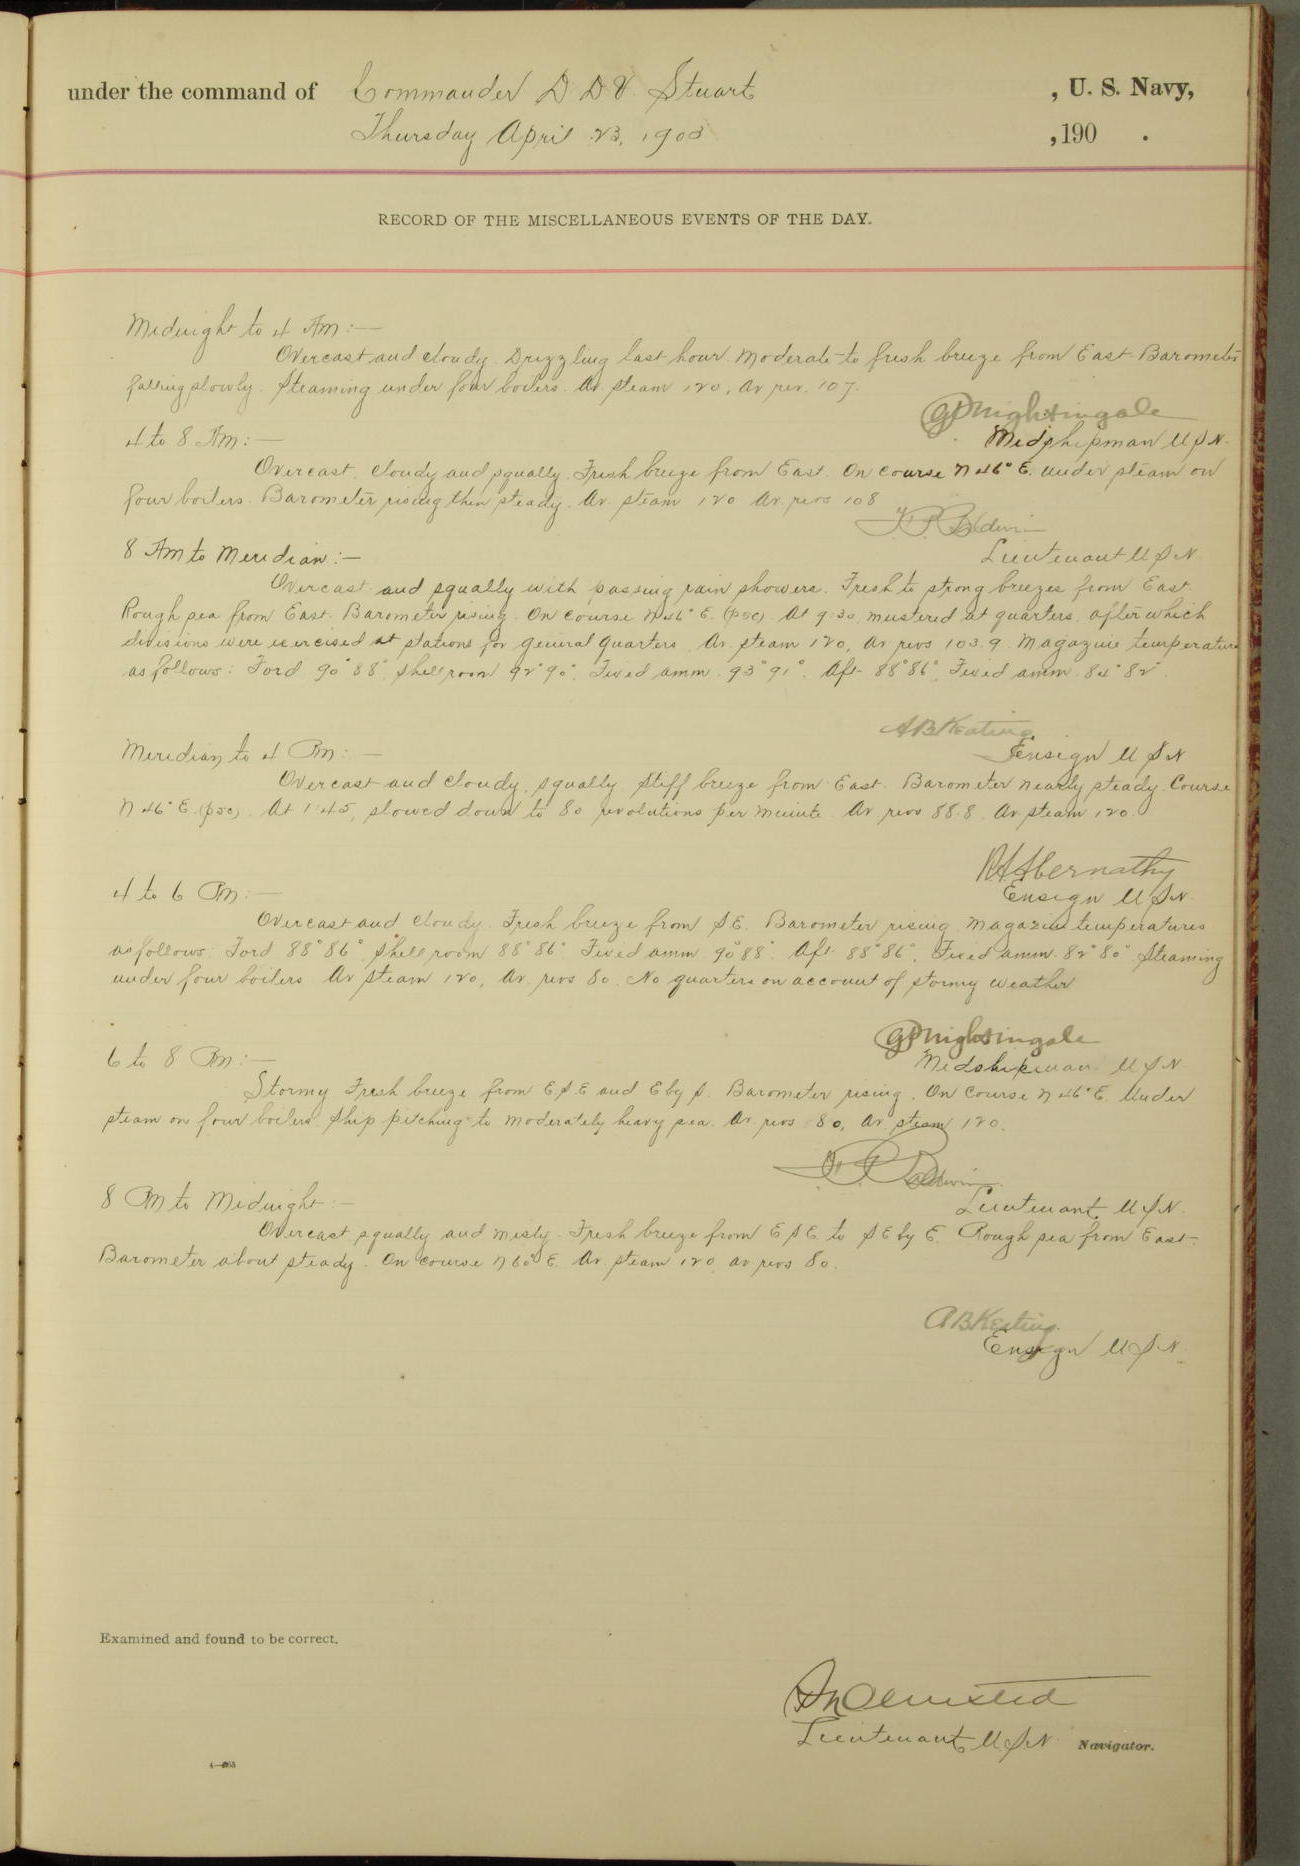 under the command of Commander D D V. Stuart, U. S. Navy,
Thursday April 23, 1903, 190 .
RECORD OF THE MISCELLANEOUS EVENTS OF THE DAY.
Midnight to 4 AM:—
Overcast and cloudy. Drizzling last hour. Moderate to fresh breeze from East. Barometer
falling slowly. Steaming under four boilers. Av. steam 120, Av rev. 107.
GPNightingale
4 to 8 AM:—
Midshipman U S N.
Overcast, cloudy and squally. Fresh breeze from East. On course N 46° E. under steam on
four boilers. Barometer rising then steady. Av. steam 120 Av. revs 108
Lieutenant U S N
8 AM to Meridian:—
Overcast and squally with passing rain showers. Fresh to strong breezes from East.
Rough sea from East. Barometer rising. On course N 46° E. (psc). At 9.30 mustered at quarters, after which
divisions were exercised at stations for general quarters. Av. steam 120, Av revs 103.9. Magazine temperature
as follows: Ford 90° 88°, Shell room 92° 90°, Fixed amm. 93° 91°. Aft 88° 86°, Fixed amm. 84° 82°.
ABKeating
Meridian to 4 PM:—
Ensign U S N
Overcast and cloudy, squally. Stiff breeze from East. Barometer nearly steady. Course
N 46° E. (psc). At 1:45, slowed down to 80 revolutions per minute. Av revs 88.8. Av steam 120.
RAbernathy
4 to 6 PM:—
Ensign U S N.
Overcast and cloudy. Fresh breeze from S E. Barometer rising. Magazine temperatures
as follows: Ford 88° 86°, Shell room 88° 86° Fixed amm 90° 88°. Aft 88° 86°, Fixed amm. 82° 80° Steaming
under four boilers. Av steam 120, Av. revs 80. No quarters on account of stormy weather
GPNightingale
6 to 8 PM:—
Midshipman U S N
Stormy. Fresh breeze from E.S.E and E by S. Barometer rising. On course N 46° E. Under
steam on four boilers. Ship pitching to moderately heavy sea. Av revs 80, Av. steam 120.
8 PM to Midnight:—
Lieutenant, U S N.
Overcast squally and misty. Fresh breeze from E S E to S E by E. Rough sea from East.
Barometer about steady. On course N 60° E. Av. steam 120. av revs 80.
ABKeating
Ensign U S N.
Examined and found to be correct.
Olmsted
Lieutenant, U.S.N. Navigator.